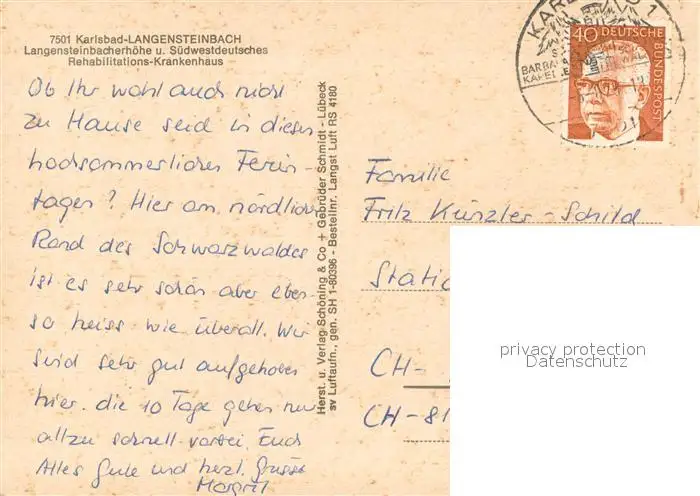 7501 Karlsbad-LANGENSTEINBACH
Langensteinbacherhöhe u. Südwestdeutsches
Rehabilitations-Krankenhaus
Ob Ihr wohl auch nicht
zu Hause seid in diesen
hochsommerlichen Ferien-
tagen? Hier am nördlichen
Rand des Schwarzwaldes
ist es sehr schön aber eben-
so heiss wie überall. Wir
sind sehr gut aufgehoben
hier. die 10 Tage gehen nur
allzu schnell vorbei. Euch
Alles Gute und herzl. Grüsse
Margrit
Herst. u. Verlag: Schöning & Co + Gebrüder Schmidt - Lübeck
sv Luftaufn., gen. SH 1-80396 - Bestellnr. Langst Luft RS 4180
KARLSBAD 1
BARBARA
KAPELLE
40 DEUTSCHE
BUNDESPOST
Familie
Fritz Künzler-Schild
Static
CH-
CH-81
privacy protection
Datenschutz